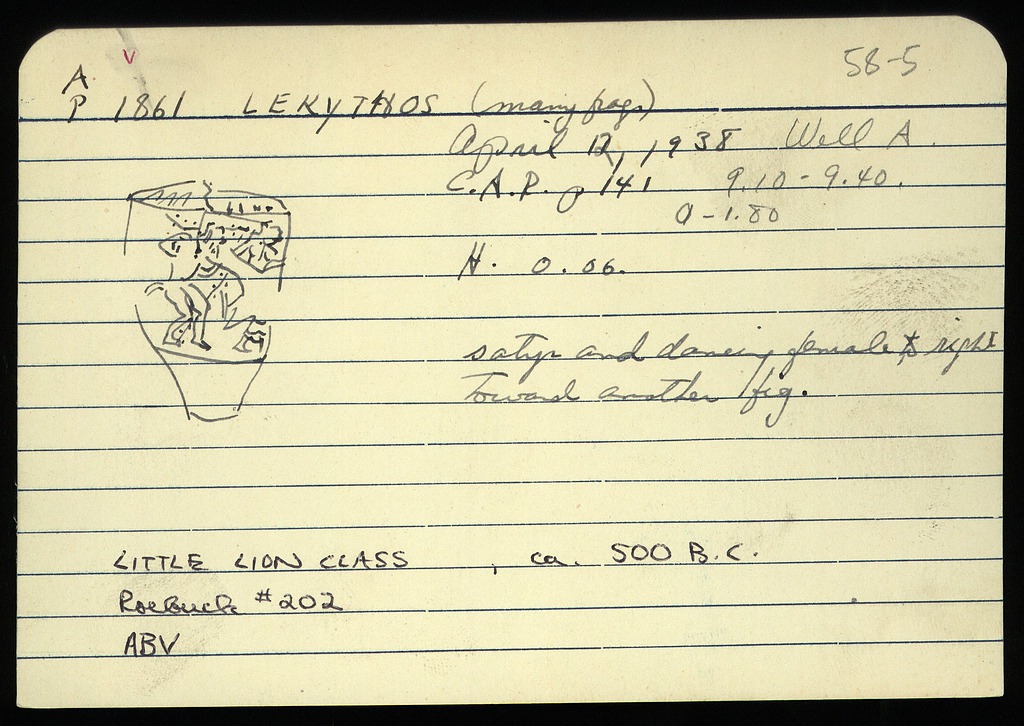 58-5
A
V
P 1861 LEKYTHOS (many frags)
April 12, 1938 Well A.
C.A.P. p 141 9.10-9.40.
0-1.80
H. 0.06.
satyr and dancing female to right
toward another fig.
LITTLE LION CLASS , ca. 500 B.C.
Roebuck #202
ABV